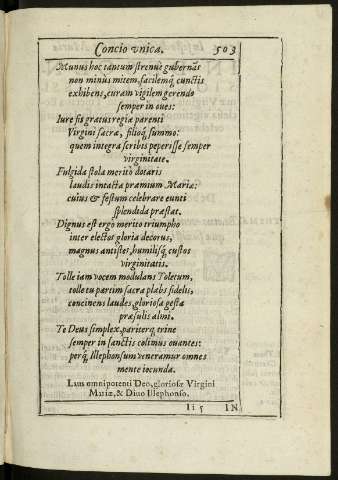 Concio vnica. 503
Munus hoc tantum strenuè gubernãs
non minus mitem, facilemq́; cunctis
exhibens, curam vigilem gerendo
semper in oues:
Iure sis gratus regiæ parenti
Virgini sacræ, filioq́; summo:
quem integra scribis peperisse semper
virginitate.
Fulgida stola merito dotaris
laudis intactæ præmium Mariæ:
cuius & festum celebrare eunti
splendida præstat.
Dignus est ergo merito triumpho
inter electos gloria decorus,
magnus antistes, humilisq́; custos
virginitatis.
Tolle iam vocem modulans Toletum,
tolle tu partim sacra plebs fidelis,
concinens laudes, gloriosa gesta
præsulis almi.
Te Deus simplex, pariterq́; trine
semper in sanctis colimus ouantes:
perq́; Illephonsum veneramur omnes
mente iocunda.
Laus omnipotenti Deo, gloriosæ Virgini
Mariæ, & Diuo Illephonso.
Ii 5 IN